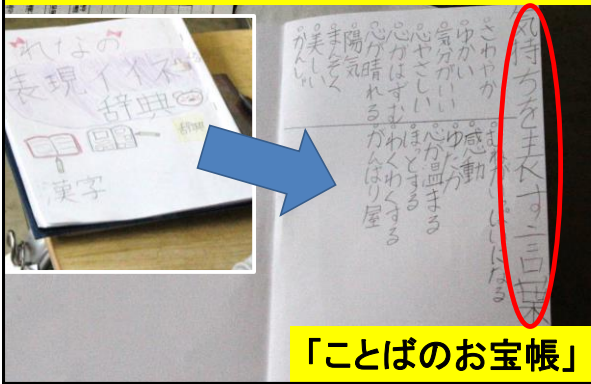 れなの
表現イイネ
辞典
辞典
漢字
気持ちを表す言葉
さわやか
ゆかい
気分がいい
心やさしい
心がはずむ
心が晴れる
陽気
まんぞく
美しい
かんしゃ
感動
ゆたか
心が温まる
ほっとする
わくわくする
がんばり屋
「ことばのお宝帳」